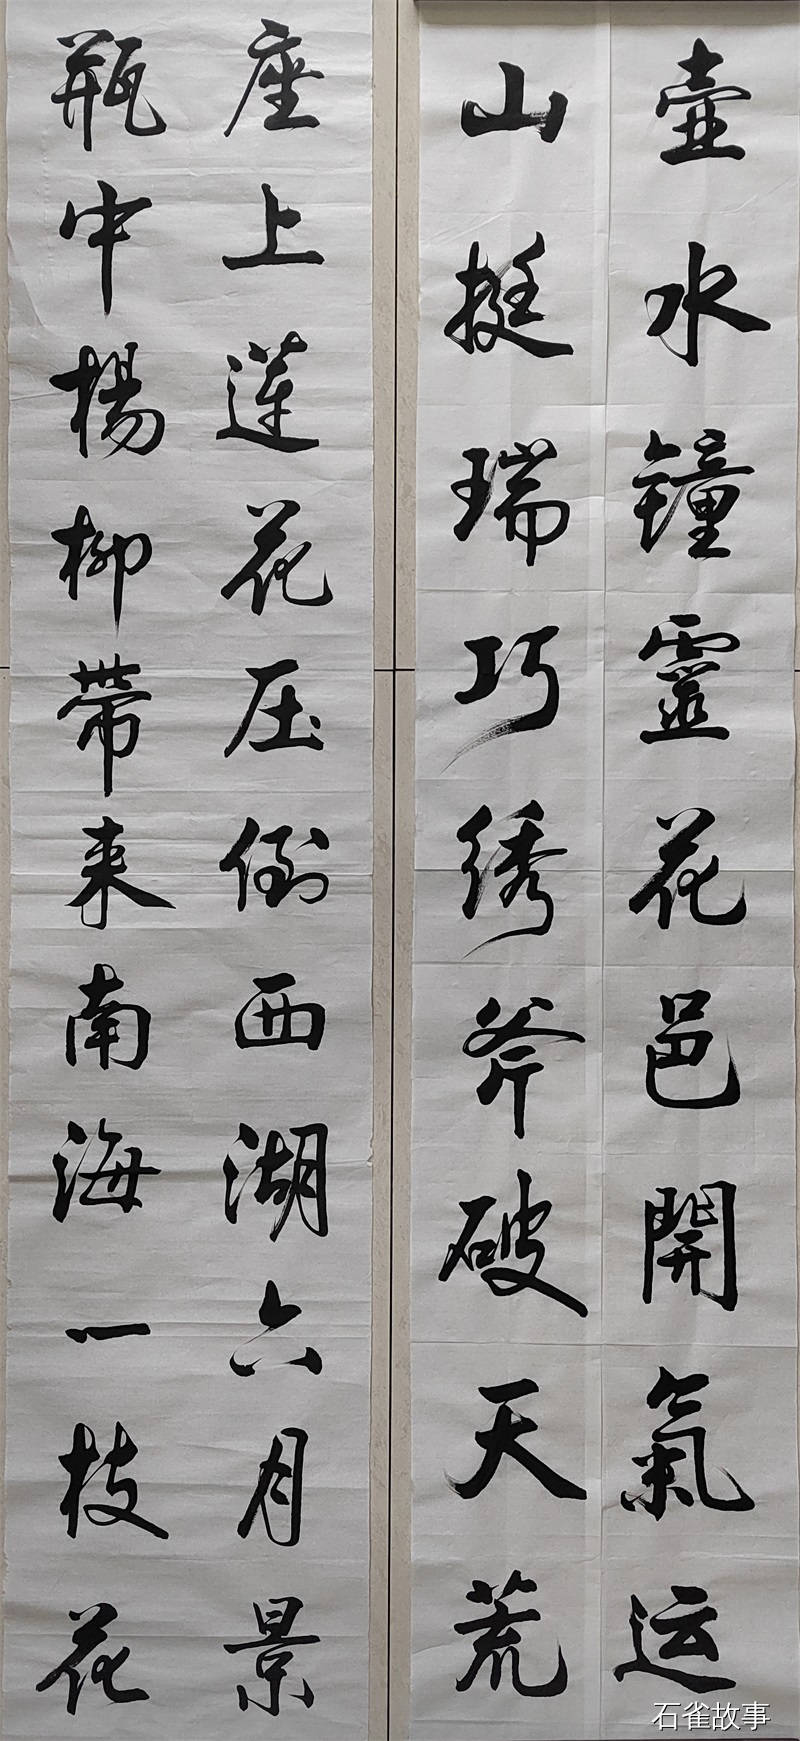 壶水鐘靈花邑開氣运
山挺瑞巧绣斧破天荒
座上莲花压倒西湖六月景
瓶中楊柳带来南海一枝花
石雀故事